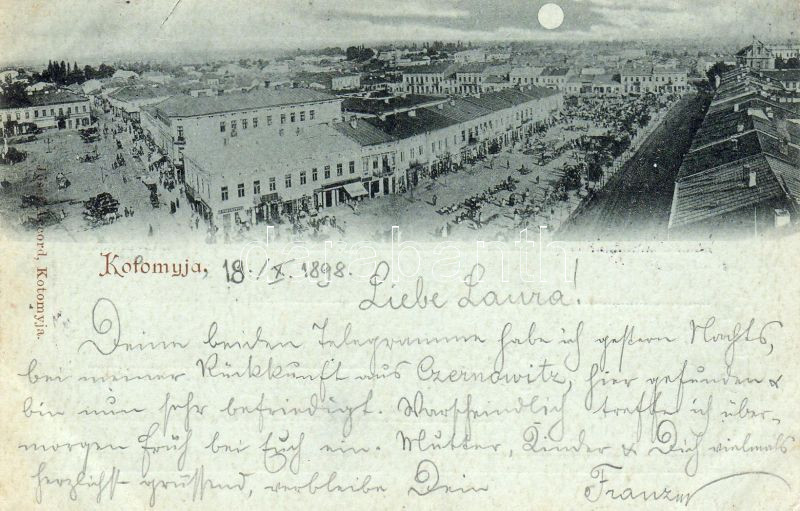 Kołomyja, 18./X. 1898.
Liebe Laura!
Deine beiden Telegramme habe ich gestern Nachts,
bei meiner Rückkunft aus Czernowitz, hier gefunden &
bin nun sehr befriedigt. Warscheindlich treffe ich über-
morgen früh bei Euch ein. Mutter, Kinder & Dich vielmals
herzlichst grüssend, verbleibe Dein Franz
cord, Kołomyja.
darabanth